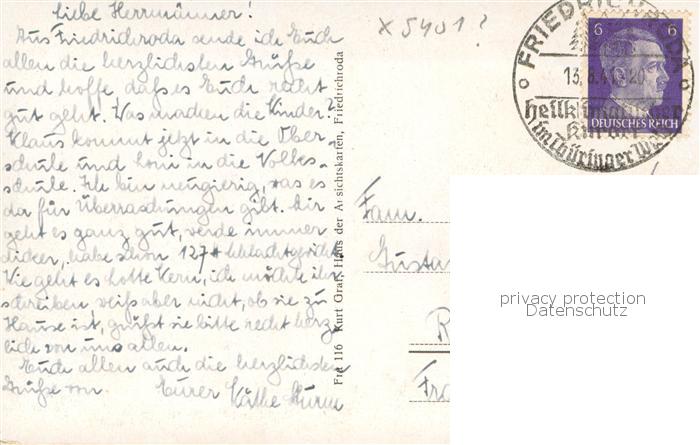 Liebe Herrmänner!
Aus Friedrichroda sende ich Euch
allen die herzlichsten Grüße
und hoffe daß es Euch recht
gut geht. Was machen die Kinder?
Klaus kommt jetzt in die Ober-
schule und in die Volks-
schule. Ich bin neugierig, was es
da für Überraschungen gibt. Mir
geht es ganz gut, werde immer
dicker, habe schon 127 # Schlachtgewicht.
Wie geht es Kern, ich möchte ihr
schreiben weiß aber nicht, ob sie zu
Hause ist, grüßt sie bitte recht herz-
lich von uns allen.
Euch allen auch die herzlichsten
Grüße von Eurer Käthe Sturm
Fri 116 Kurt Graf, Haus der Ansichtskarten, Friedrichroda
x 5401?
FRIEDRICHRODA
13.8.41. 20
heilklimatischer
Kurort
im Thüringer Wald
6 6
DEUTSCHES REICH
Fam.
Gusta
R
Fra
privacy protection
Datenschutz